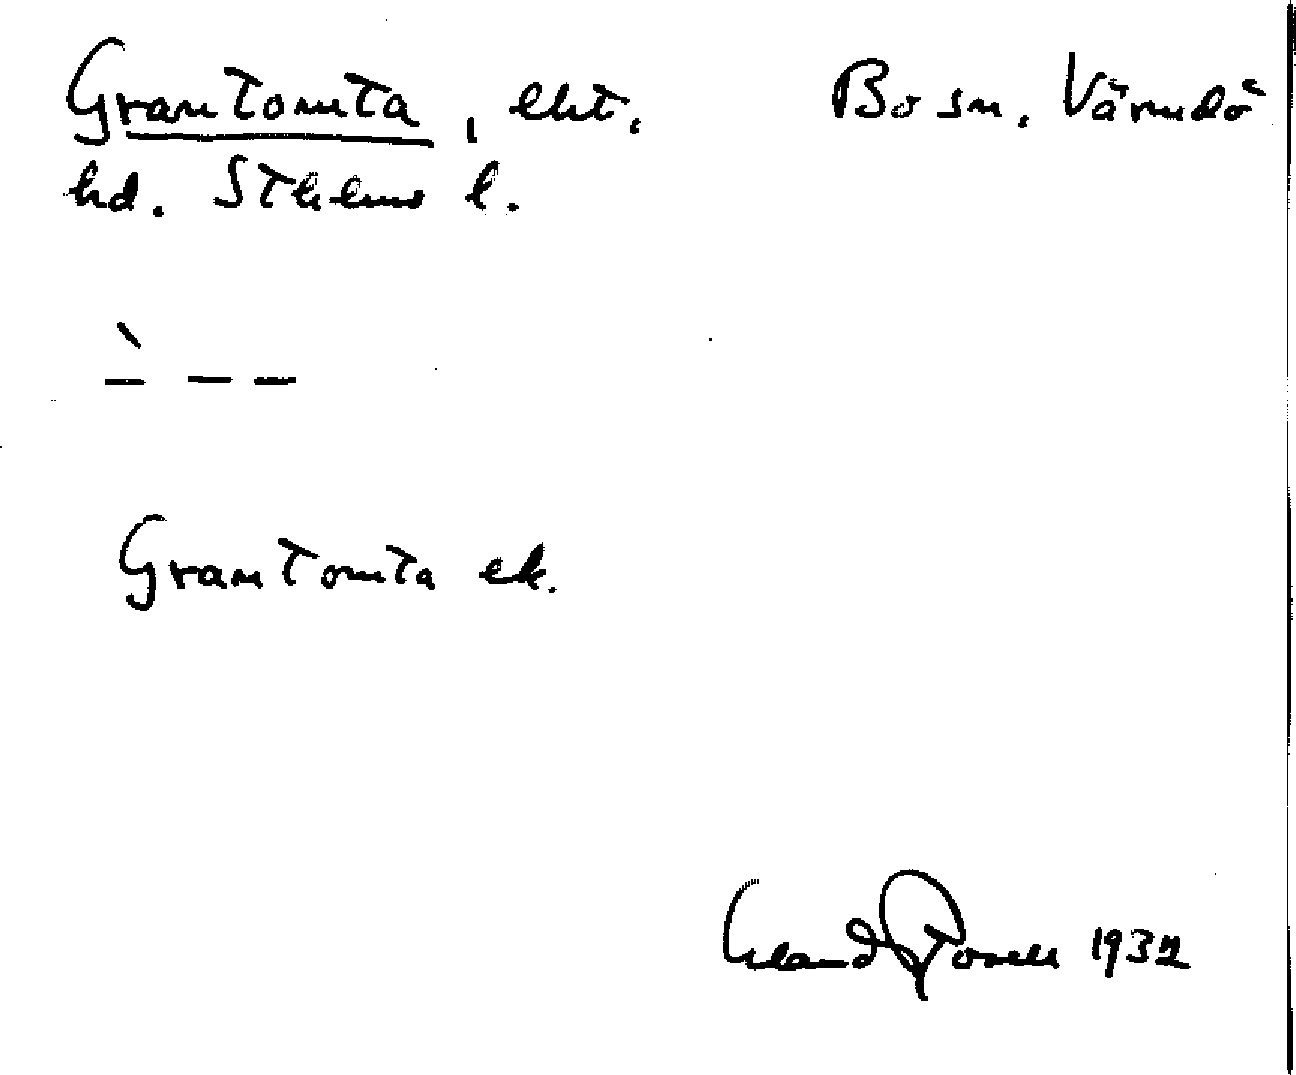 Grantomta, lht. Bo sn. Värmdö
hd. Sthlms l.
Grantomta ek.
Erland Rosell 1932